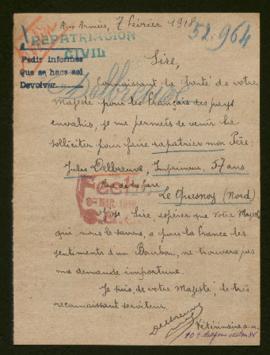 Aux Armées, 7 février 1918
52.964
REPATRIACION
CIVIL
Pedir informes
Que se hace así
Devolver
Delbreuve
Sire,
Connaissant la bonté de votre
Majesté pour les Français des pays
envahis, je me permets de venir la
solliciter pour faire rapatrier mon Père
Jules Delbreuve, Imprimeur, 57 ans
Le Quesnoy (Nord)
J'ose, Sire espérer que votre Majesté
qui nous le savons, a pour la France des
sentiments d'un Bourbon, ne trouvera pas
ma demande importune.
Je suis de votre Majesté, le très
reconnaissant serviteur.
Delbreuve
Vétérinaire a.m.